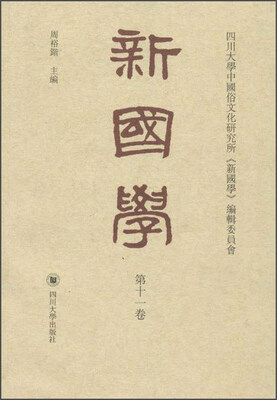 四川大學中國俗文化研究所《新國學》編輯委員會
新國學
第十一卷
周裕鍇 主編
四川大學出版社